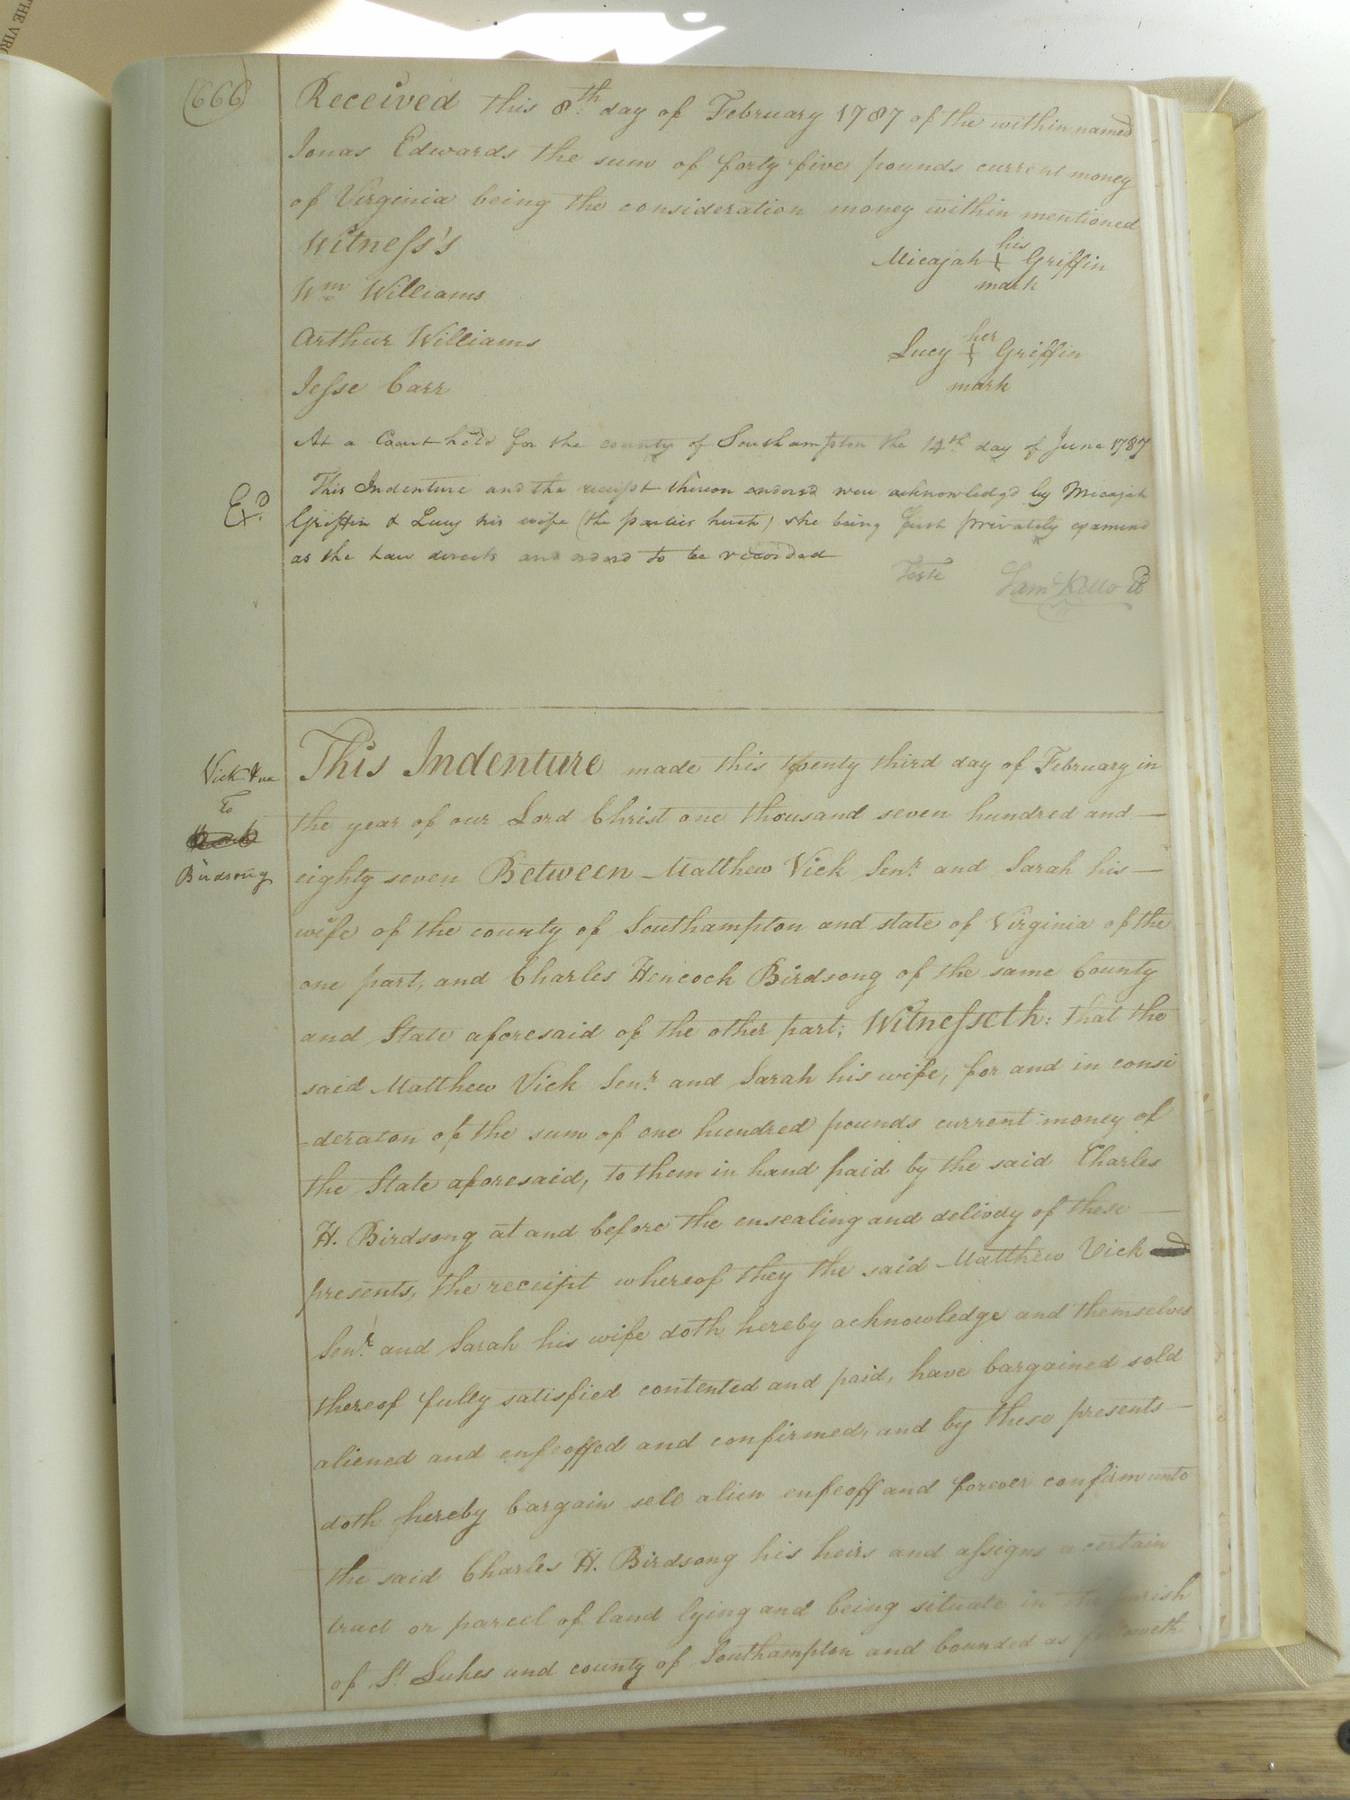 THE VIRG
(666)
Received this 8th day of February 1787 of the within named
Jonas Edwards the sum of forty five pounds current money
of Virginia being the consideration money within mentioned
Witness's
Micajah his mark Griffin
Wm Williams
Arthur Williams
Lucy her mark Griffin
Jesse Carr
At a Court held for the county of Southampton the 14th day of June 1787
This Indenture and the receipt thereon endorsd were acknowledgd by Micajah
Exd.
Griffin & Lucy his wife (the parties hereto) she being first privately examined
as the Law directs and ordord to be recorded
Teste
Saml Kello
Vick &ux
To
Birdsong
This Indenture made this twenty third day of February in
the year of our Lord Christ one thousand seven hundred and —
eighty seven Between Matthew Vick Senr. and Sarah his —
wife of the county of Southampton and state of Virginia of the
one part, and Charles Hencock Birdsong of the same County
and State aforesaid of the other part; Witnesseth: that the
said Matthew Vick Senr. and Sarah his wife, for and in consi
-deraton of the sum of one hundred pounds current money of
the State aforesaid, to them in hand paid by the said Charles
H. Birdsong at and before the ensealing and delivdy of these —
presents, the receipt whereof they the said Matthew Vick
Senr. and Sarah his wife doth hereby acknowledge and themselves
thereof fully satisfied contented and paid, have bargained sold
aliened and enfeoffed and confirmed, and by these presents —
doth hereby bargain sell alien enfeoff and forever confirm unto
the said Charles H. Birdsong his heirs and assigns a certain
tract or parcel of land lying and being situate in the parish
of St. Lukes and county of Southampton and bounded as followeth